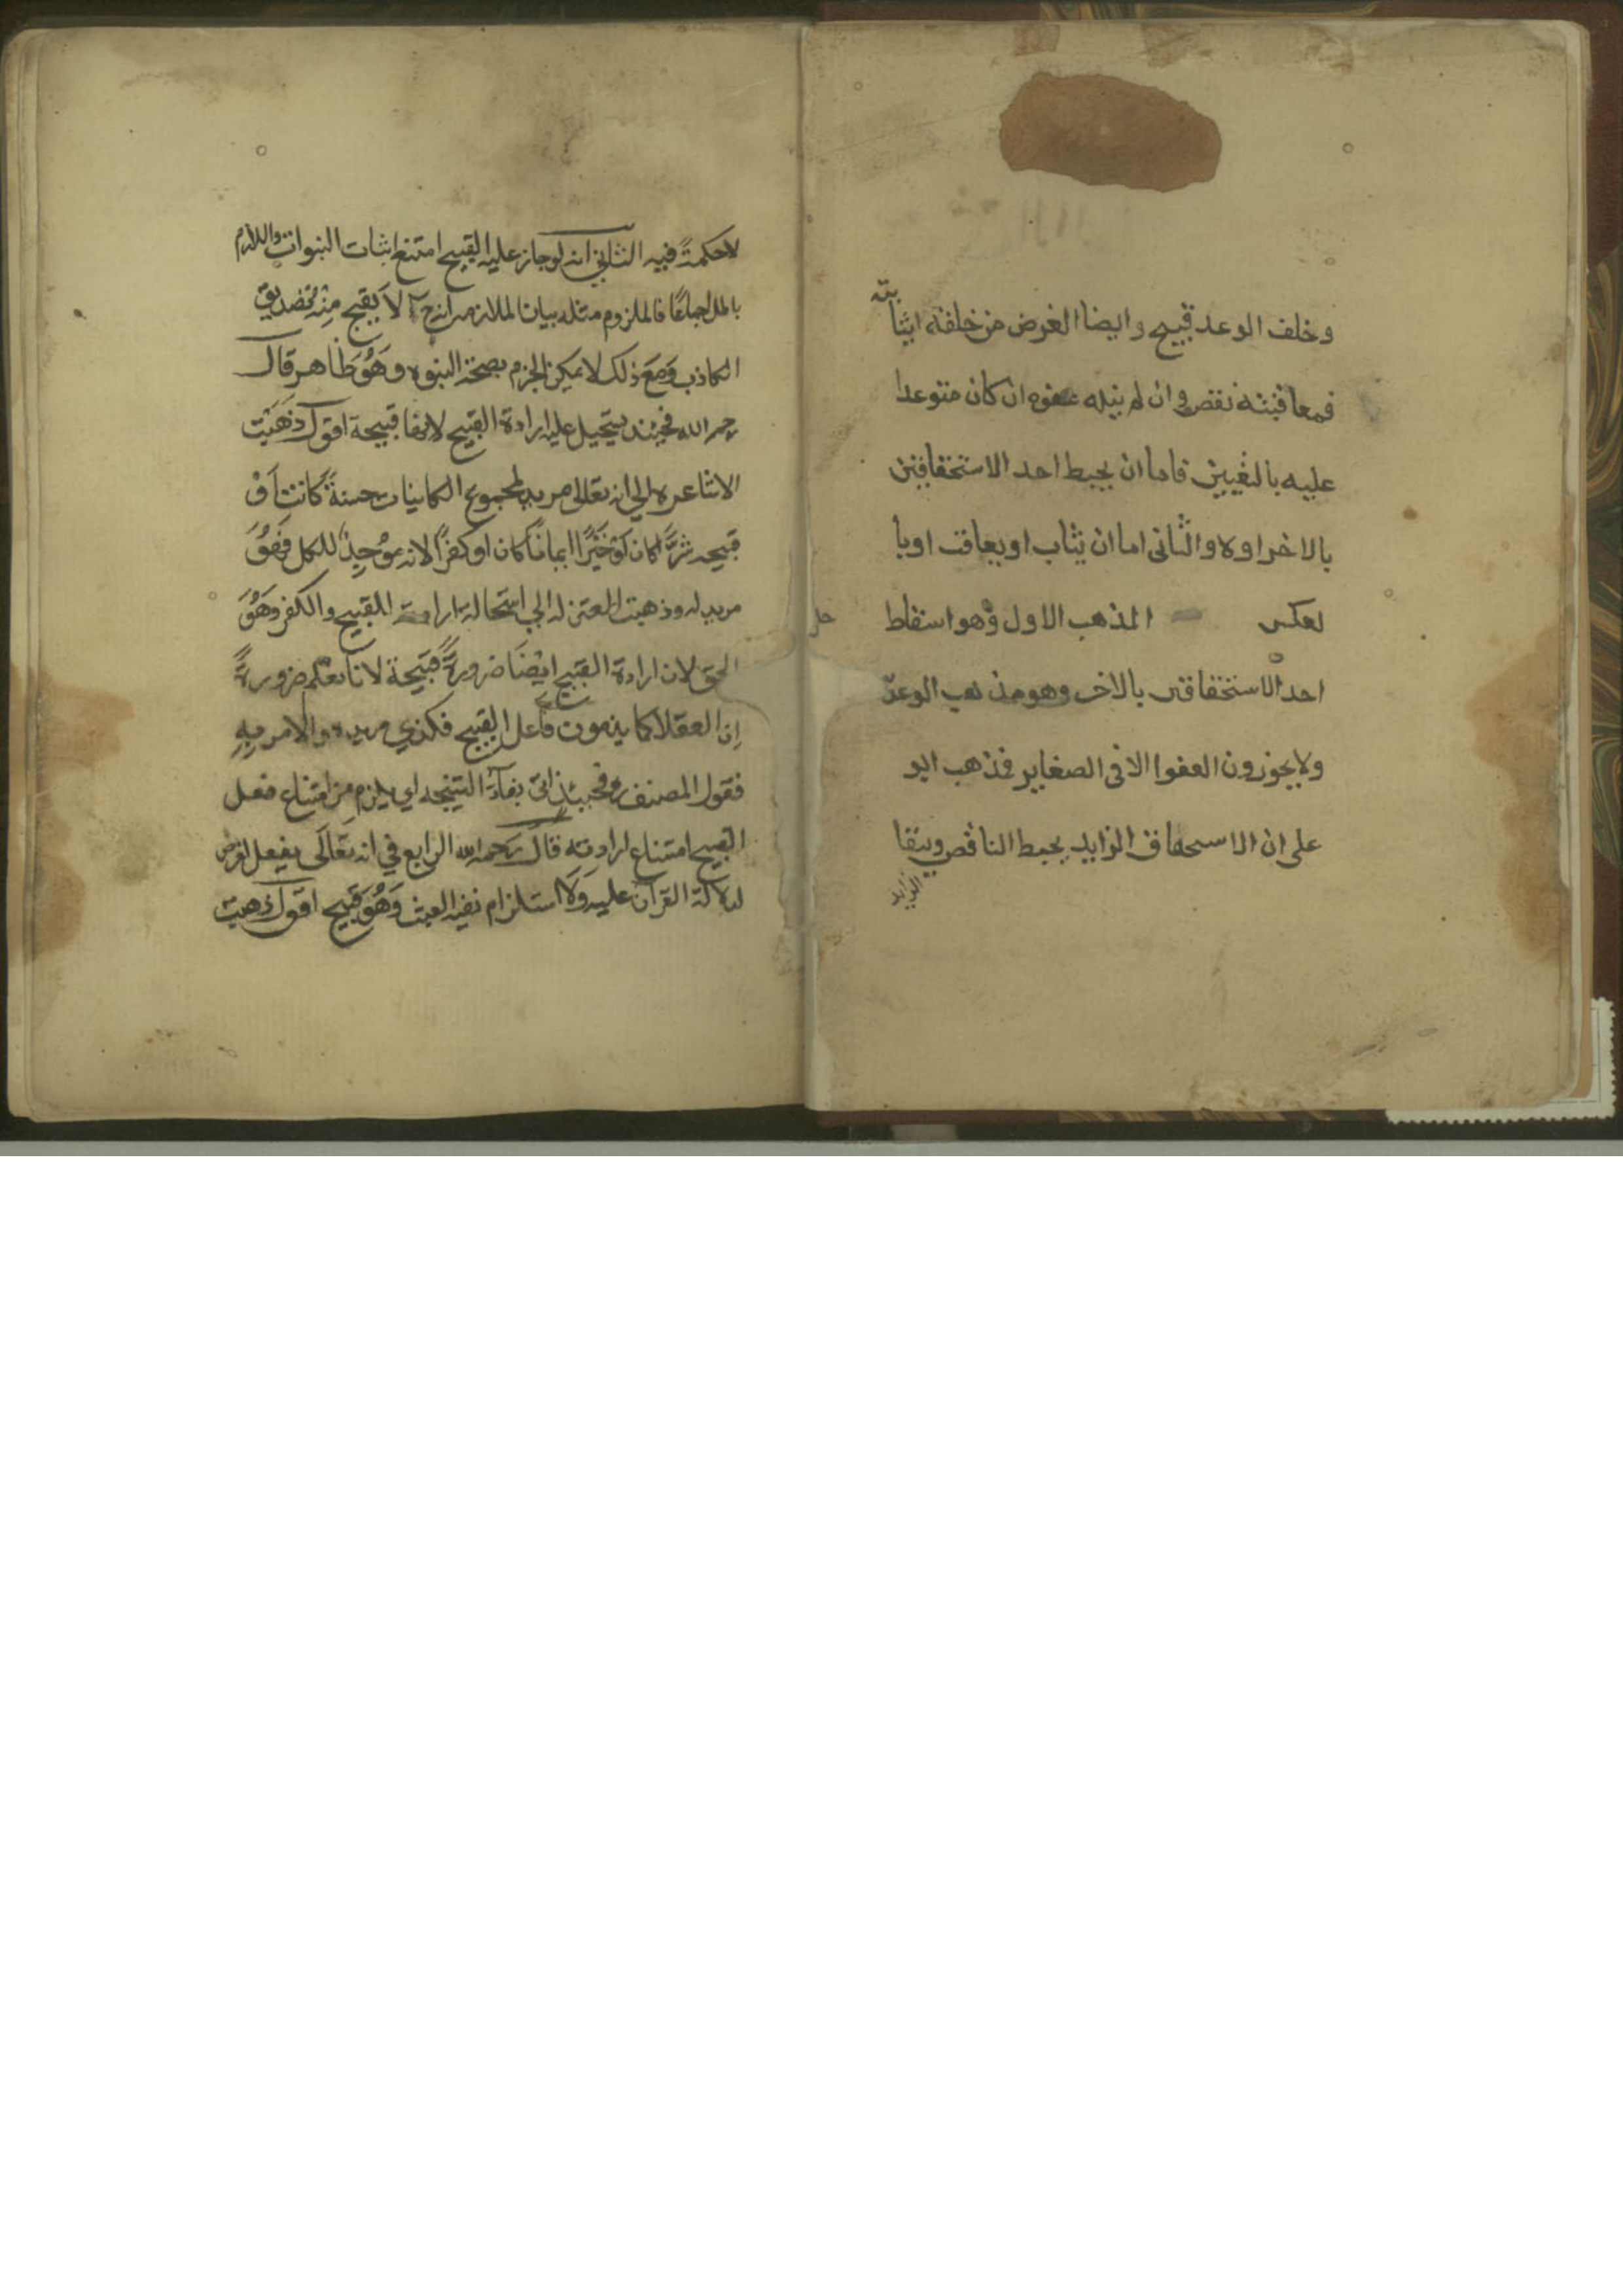 وخلف الوعد قبيح وايضا الغرض من خلقه اثبا
بته
فمعاقبته نقص وان لم ينله عفوه ان كان متوعدا
عليه بالتعيين فاما ان يحبط احد الاستحقاقين
بالاخر اولا والثانى اما ان يثاب او يعاقب او با
لعكس المذهب الاول وهو اسقاط
احد الاستحقاقين بالاخر وهو مذهب الوعد
ولا يجوزون العفوا الا فى الصغاير فذهب ابو
على ان الاستحقاق الزايد يحبط الناقص ويبقا
الزايد
لا حكمة فيه الثاني انه لو جاز عليه القبيح امتنع اثبات النبوات واللازم
باطل اجماعًا فالملزوم مثله بيان الملازمه انه ح لا يقبح منه تصديق
الكاذب ومع ذلك لا يمكن الجزم بصحة النبوه وهو ظاهر قال
رحمه الله فحينئذ يستحيل عليه ارادة القبيح لانها قبيحة اقول ذهبت
الاشاعره الى انه تعالى مريد لمجموع الكاينات حسنةً كانت او
قبيحه شرًّا كان او خيرًا ايمانًا كان او كفرًا لانه موجد للكل فهو
مريد له وذهبت المعتزله الي استحالة ارادة القبيح والكفر وهو
الحق لان ارادة القبيح ايضًا ضرورةً قبيحة لانا نعلم ضرورةً
ان العقلا كما يذمون فاعل القبيح فكذي مريده والامر به
فقول المصنف وحينئذ اتى بفآء النتيجه اي يلزم من امتناع فعل
القبيح امتناع ارادته قال رحمه الله الرابع في انه تعالى يفعل لغرض
لدلالة القرآن عليه ولاستلزام نفيه العبث وهو قبيح اقول ذهبت